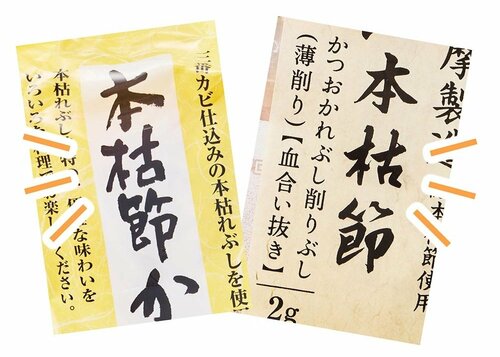 三番カビ仕込みの本枯れぶしを使
本枯節か
本枯れぶし
な味わいを
いろいろ
理
お楽し
ください。
摩製
本枯節
節使用
かつおかれぶし削りぶし
(薄削り)【血合い抜き】
2g